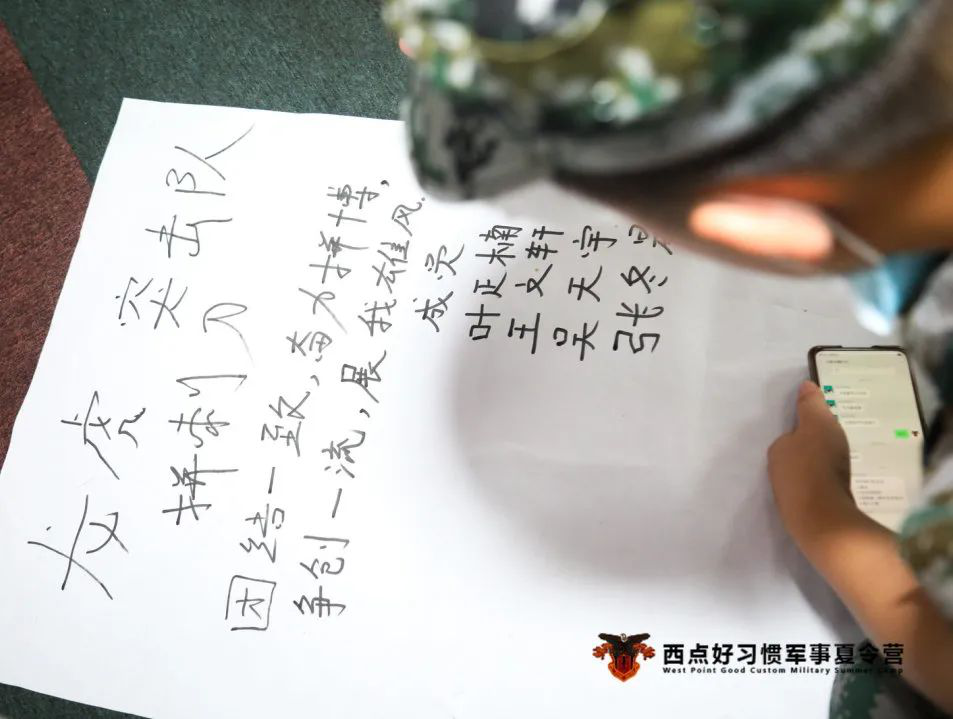 龙虎突击队
拼刺刀
团结一致,奋力拼搏,
争创一流,展我雄风.
成员
叶正楠
王文轩
吴天宇
张冬
西点好习惯军事夏令营
West Point Good Custom Military Summer Camp